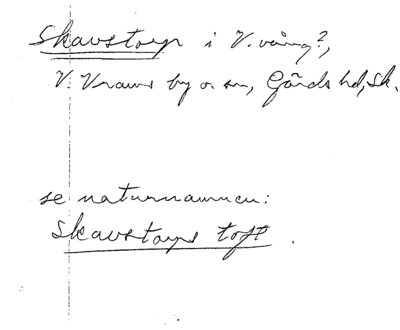 Skavstorp i V. vång?,
V. Vrams by o sn, Gärds hd, Sk.
se naturnamnen:
Skavstorps toft.